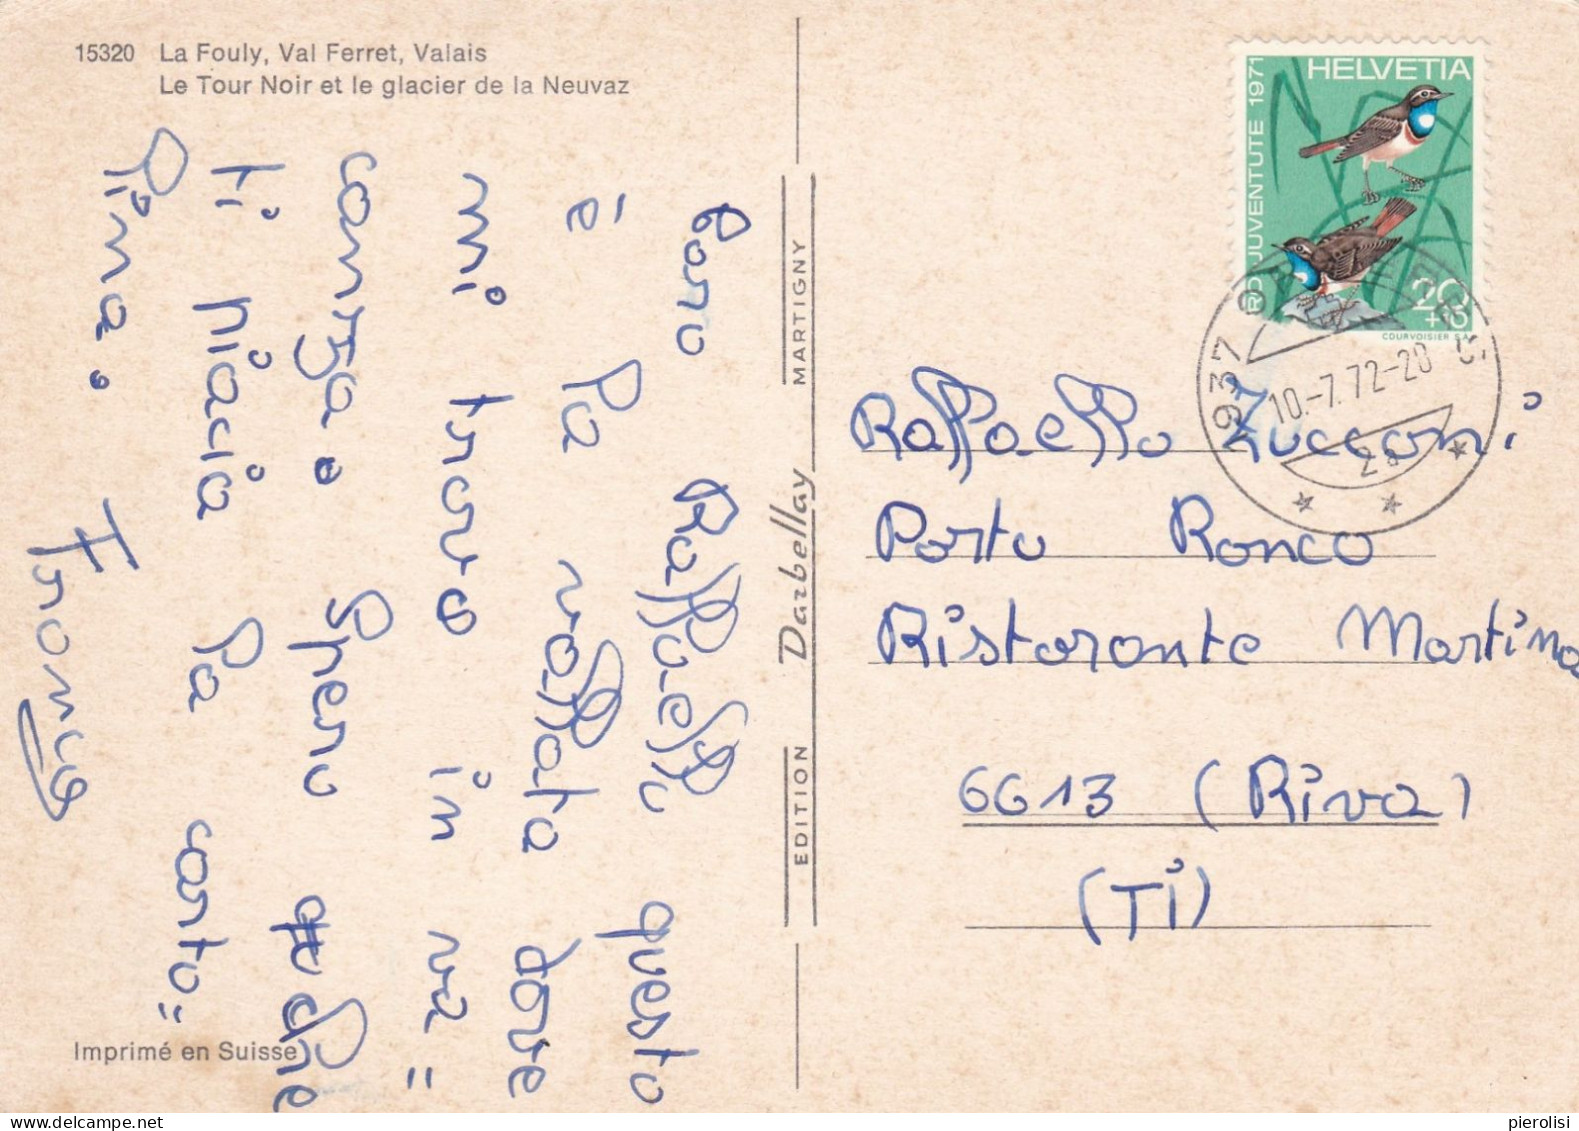 15320 La Fouly, Val Ferret, Valais
Le Tour Noir et le glacier de la Neuvaz
Caro Raffaello questo
è la vallata dove
mi trovo in va=
canza. Spero che
ti piacia la carto=
lina.
Franco
Imprimé en Suisse
EDITION Darbellay MARTIGNY
HELVETIA
PRO JUVENTUTE 1971
20
+10
COURVOISIER S.A.
1937
10.-7.72-20
2a
Raffaello Zucconi
Porto Ronco
Ristorante Martina
6613 (Riva)
(Ti)
pierolisi